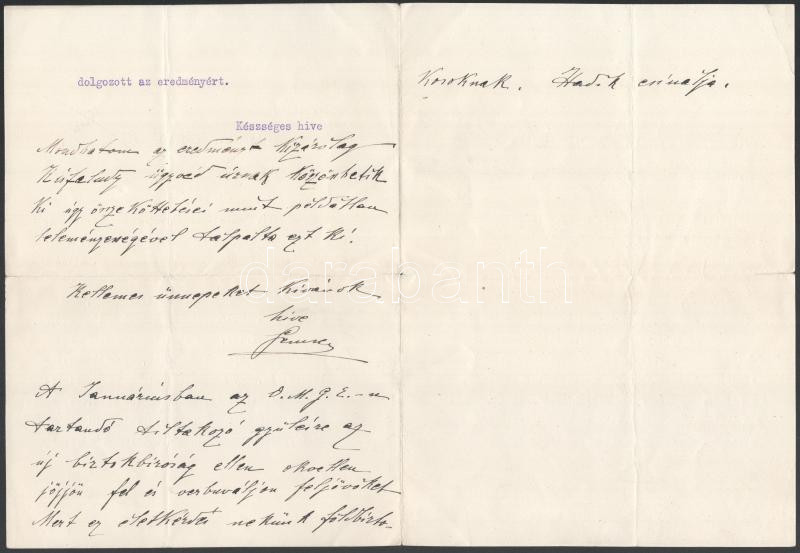 dolgozott az eredményért.
Készséges hive
Mondhatom az eredményt kizárólag
Kisfaludy ügyvéd úrnak köszönhetik
ki úgy összeköttetései mint példátlan
leleményességével talpalta ezt ki.
Kellemes ünnepeket kivánok
hive
A Januáriusban az O.M.G.E.-n
tartandó tiltakozó gyűlésre az
új birtokbiróság ellen okvetlen
jöjjön fel és verbuváljon feljövőket
Mert ez életkérdés nekünk földbirto-
kosoknak. Hadik csinálja.
darabanth